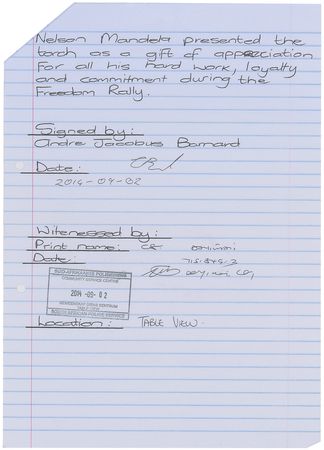 Nelson Mandela presented the
torch as a gift of appreciation
For all his hard work, loyalty
and commitment during the
Freedom Rally.
Signed by:
Andre Jacobus Barnard
Date:
2014-09-02
Witenessed by:
Print name:
Date:
SUID-AFRIKAANSE POLISIEDIENS
COMMUNITY SERVICE CENTRE
2014 -09- 02
GEMEENSKAP DIENS SENTRUM
TABLE VIEW
SOUTH AFRICAN POLICE SERVICE
Location: TABLE VIEW.